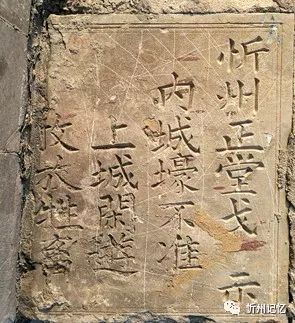 忻州正堂戈 示
内城壕不准
上城閑遊
牧牲畜
忻州记忆